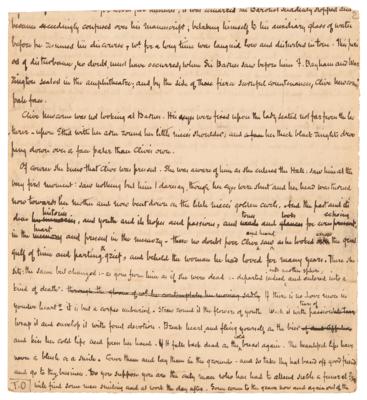 it was remarked that Barnes suddenly stopped and
became exceedingly confused over his manuscript, betaking himself to his auxiliary glass of water
before he resumed his discourse, wh for a long time was languid, low and disturbed in tone. This peri
od of disturbance, no doubt, must have occurred, when Sir Barnes saw before him F. Bayham and War
rington seated in the amphitheatre; and, by the side of those fierce scornful countenances, Clive Newcome's
pale face.
Clive Newcome was not looking at Barnes. His eyes were fixed upon the lady seated not far from the lec
turer - upon Ethel with her arm round her little niece's shoulder, and her thick black ringlets droop
ping down over a face paler than Clive's own.
Of course she knew that Clive was present. She was aware of him as she entered the Hall: saw him at the
very first moment: saw nothing but him I daresay, though her eyes were shut and her head was turned
now towards her mother and now bent down on the little niece's golden curls. And the past and its
dear histories, and youth and its hopes and passions, and tones and looks for ever echoing
in the heart and present in the memory - these no doubt poor Clive saw and heard as he looked across the great
gulf of time and parting & grief, and beheld the woman he had loved for many years. There she
sits: the same but changed: as gone from him as if she were dead: departed indeed into another sphere, and entered into a
kind of death. If there is no love more in
yonder heart it is but a corpse unburied. Strew round it the flowers of youth. Wash it with tears of passion
wrap it and envelop it with fond devotion. Break heart and fling yourself on the bier
and kiss her cold lips and press her hand. It falls back dead on the cold breast again. The beautiful lips have
never a blush or a smile. Cover them and lay them in the ground - and so take thy hat band off good friend
and go to thy business. Do you suppose you are the only man who has had to attend such a funeral? You
T.O
will find some men smiling and at work the day after. Some come to the grave now and again out of the